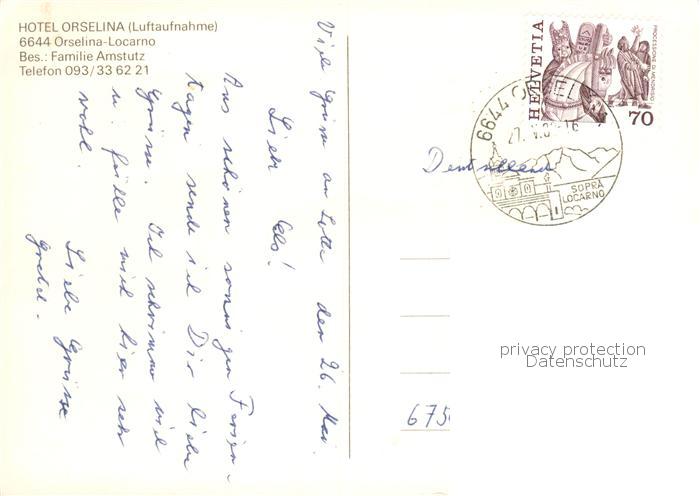 HOTEL ORSELINA (Luftaufnahme)
6644 Orselina-Locarno
Bes.: Familie Amstutz
Telefon 093/33 62 21
Viele Grüße an Lotte den 26. Mai.
Liebe Els!
Aus schönen sonnigen Ferien-
tagen sende ich Dir liebe
Grüsse. Ich schwimme viel
u. fühle mich hier sehr
wohl.
Liebe Grüsse
Gretel.
HELVETIA
PROCESSIONE DI MENDRISIO
70
6644 ORSELINA
SOPRA
LOCARNO
Deutschland
privacy protection
Datenschutz
675